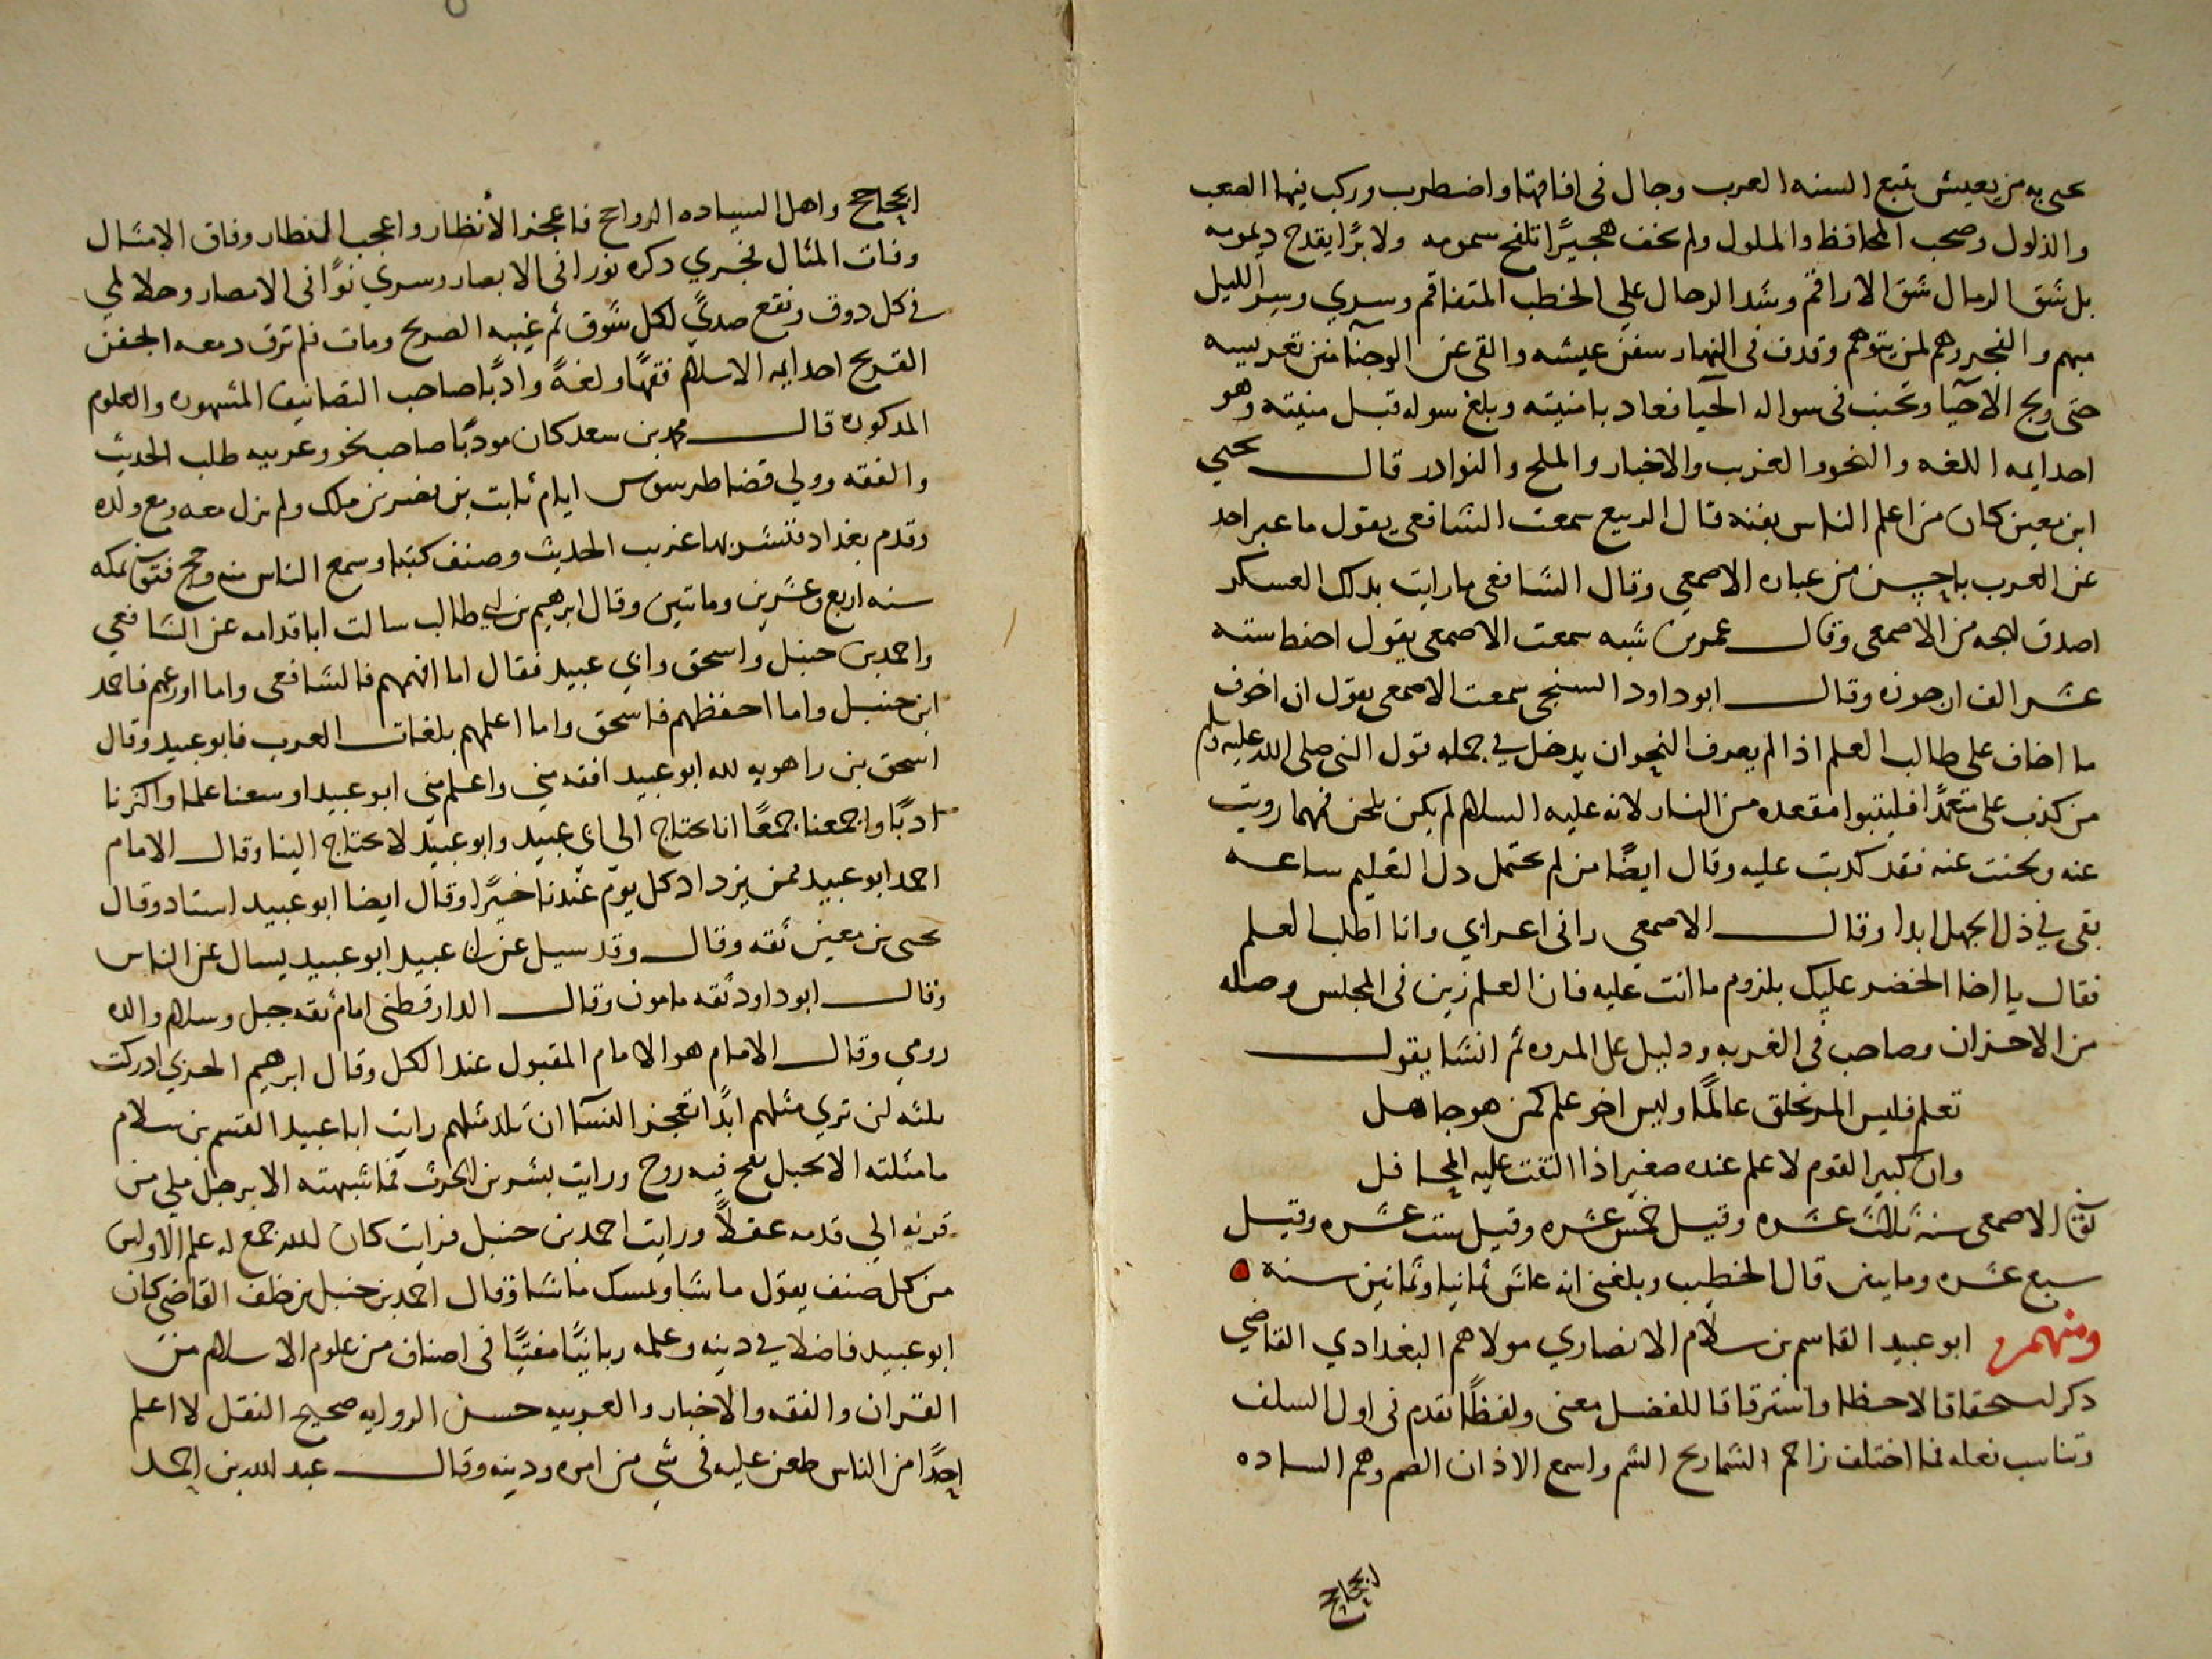 يحيى به من يعيش بتبع السنه العرب وجال فى افاقها واضطرب وركب فيها الصعب
والذلول وصحب المحافظ والملول ولم يخف هجيرًا تلفح سمومه ولا برًا يقدح ديمومه
بل شق الرمال شق الاراقم وشد الرحال علي الخطب المتفاقم وسري وسر الليل
مبهم والفجر وهم لمن يتوهم وقذف فى النهار سفن عيشه والقى عن الوجنآ من تعريسه
حتى وبح الاحيآ ونحنب فى سواله الحيا فعاد بامنيته وبلغ سوله قبل منيته وهو
احد ايمه اللغه والنحو والغريب والاخبار والملح والنوادر قال يحيي
ابن معين كان من اعلم الناس بفنه قال الربيع سمعت الشافعى يقول ما عبر احد
عن العرب باحسن من عباره الاصمعي وقال الشافعى ما رايت بدلك العسكر
اصدق لهجه من الاصمعى وقال عمر بن شبه سمعت الاصمعى يقول احفظ سته
عشر الف ارجوزه وقال ابو داود السنجي سمعت الاصمعى يقول ان اخوف
ما اخاف على طالب العلم اذا لم يعرف النحو ان يدخل في جمله قول النبي صلى الله عليه وسلم
من كذب على متعمدًا فليتبوا مقعده من النار لانه عليه السلام لم يكن يلحن فمهما رويت
عنه ولحنت عنه فقد كدبت عليه وقال ايضًا من لم يحتمل دل التعليم ساعه
بقى في ذل الجهل ابدا وقال الاصمعي راني اعرابي وانا اطلب العلم
فقال يا اخا الحضر عليك بلزوم ما انت عليه فان العلم زين فى المجلس وصله
من الاخران وصاحب فى الغربه ودليل على المروه ثم انشا يقول
تعلم فليس المر يخلق عالمًا وليس اخو علم كمن هو جاهل
وان كبير القوم لا علم عنده صغير اذا التفت عليه المحافل
توفى الاصمعى سنة ثلاث عشره وقيل خمس عشره وقيل ست عشره وقيل
سبع عشره وماتين قال الخطيب وبلغنى انه عاش ثمانيا وثمانين سنه
ومنهم ابو عبيد القاسم بن سلام الانصاري مولاهم البغدادي القاضي
ذكر استحقاقا لاحظا واسترقاقا للفضل معنى ولفظًا تقدم فى اول السلف
وتناسب فعله فما اختلف زاحم الشماريخ الشم واسمع الاذان الصم وهم الساده
الجحاجح
الجحاجح واهل السياده الرواجح فاعجز الأنظار واعجب النظار وفاق الامثال
وفات المثال فجري دكره نورا فى الابصار وسري نوًا فى الامصار وحلا لمي
في كل دوق ونقع صديً لكل شوق ثم غيبه الضريح ومات فلم ترق دمعه الجفن
القريح احد ايمه الاسلام فقهًا ولغةً وادبًا صاحب التصانيف المشهوره والعلوم
المدكوره قال محمد بن سعد كان مودبًا صاحب نحو وعربيه طلب الحديث
والفقه وولي قضا طرسوس ايام ثابت بن نصر بن ملك ولم يزل معه ومع ولده
وقدم بغداد ففسر بها غريب الحديث وصنف كتبا وسمع الناس منه وحج فتوفى بمكه
سنه اربع وعشرين وماتين وقال ابرهيم بن ابي طالب سالت ابا قدامه عن الشافعي
واحمد بن حنبل واسحق وابي عبيد فقال اما افهمهم فالشافعى واما اورعهم فاحمد
ابن حنبل واما احفظهم فاسحق واما اعلمهم بلغات العرب فابو عبيد وقال
اسحق بن راهويه لله ابو عبيد افقه مني واعلم مني ابو عبيد اوسعنا علما واكثرنا
ادبًا واجمعنا جمعًا انا نحتاج الى ابي عبيد وابو عبيد لا يحتاج الينا وقال الامام
احمد ابو عبيد ممن يزداد كل يوم عندنا خيرًا وقال ايضا ابو عبيد استاد وقال
يحيى بن معين ثقه وقال وقد سيل عن ابي عبيد ابو عبيد يسال عن الناس
وقال ابو داود ثقه مامون وقال الدارقطنى امام ثقه جبل وسلام والده
رومي وقال الامام هو الامام المقبول عند الكل وقال ابرهيم الحربي ادركت
ثلثه لن تري مثلهم ابدًا تعجز النسآ ان تلد مثلهم رايت ابا عبيد القسم بن سلام
ما مثلته الا بجبل نفخ فيه روح ورايت بشر بن الحرث فما شبهته الا برجل ملي من
قرنه الي قدمه عقلًا ورايت احمد بن حنبل فرايت كان الله جمع له علم الاولين
من كل صنف يقول ما شا ويمسك ما شا وقال احمد بن حنبل بن خلف القاضى كان
ابو عبيد فاضلا في دينه وعلمه ربانيًا مفتيًا فى اصناف من علوم الاسلام من
القران والفقه والاخبار والعربيه حسن الروايه صحيح النقل لا اعلم
احدًا من الناس طعن عليه فى شي من امره ودينه وقال عبد الله بن احمد